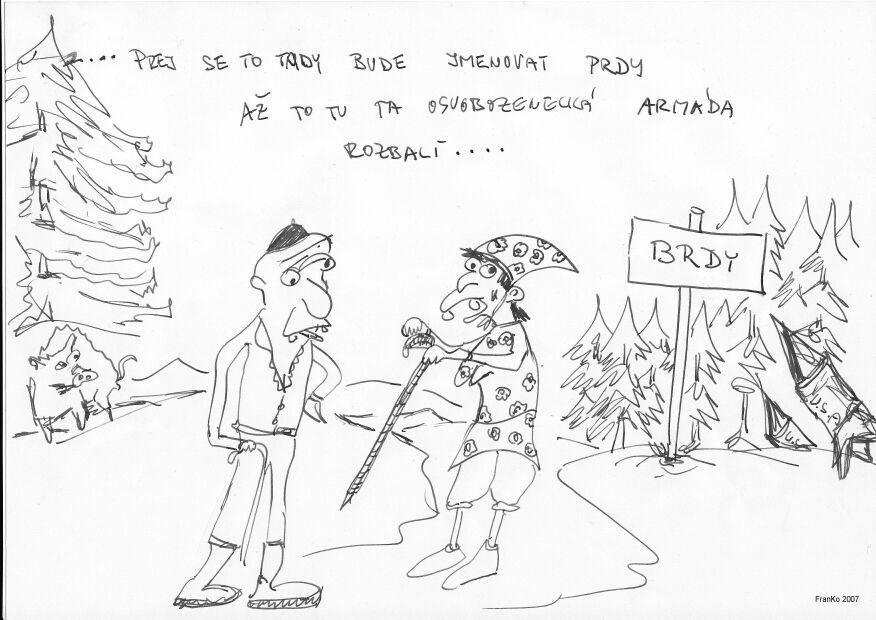 .... PREJ SE TO TADY BUDE JMENOVAT PRDY
AŽ TO TU TA OSVOBOZENECKÁ ARMÁDA
ROZBALÍ ....
BRDY
U.S.A
U.S.
FranKo 2007